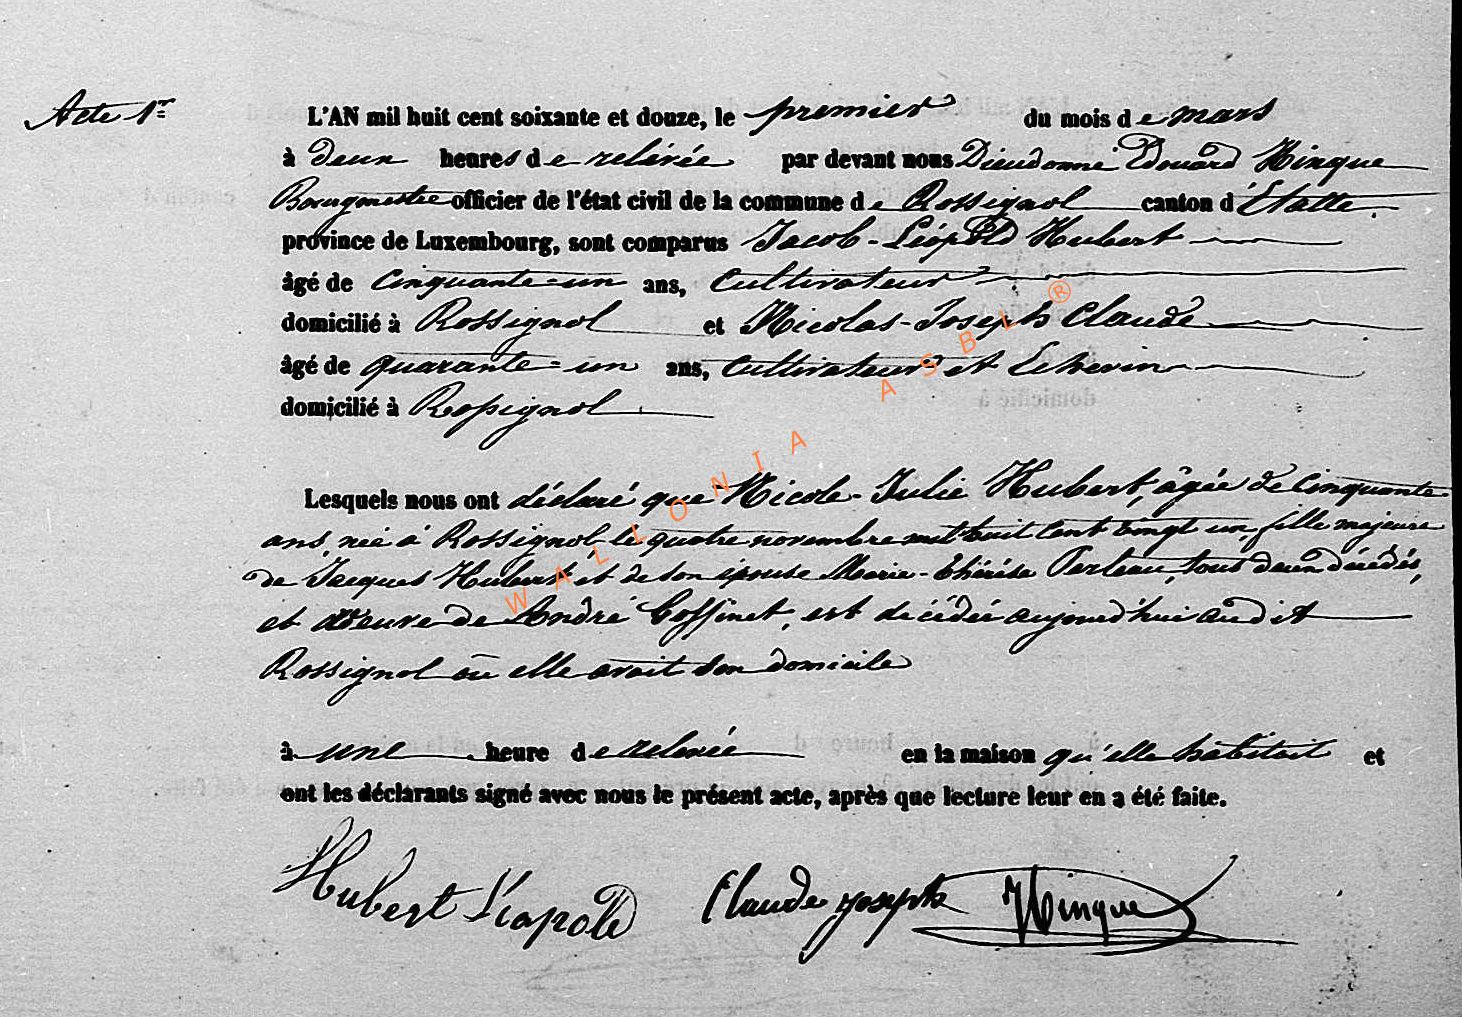 Acte 1er
L'AN mil huit cent soixante et douze, le premier du mois de mars
à deux heures de relevée par devant nous Dieudonné Edouard Hinque
Bourgmestre officier de l'état civil de la commune de Rossignol canton d'Etalle.
province de Luxembourg, sont comparus Jacob-Léopold Hubert
âgé de cinquante-un ans, cultivateur
domicilié à Rossignol et Nicolas-Joseph Claude
âgé de quarante-un ans, cultivateur et Echevin
domicilié à Rossignol
Lesquels nous ont déclaré que Nicole-Julie Hubert, âgée de cinquante
ans, née à Rossignol le quatre novembre mil huit cent vingt un, fille majeure
de Jacques Hubert et de son épouse Marie-Thérèse Perleau, tous deux décédés,
et veuve de André Goffinet, est décédée aujourd'hui audit
Rossignol où elle avait son domicile
à une heure de relevée en la maison qu'elle habitait et
ont les déclarants signé avec nous le présent acte, après que lecture leur en a été faite.
Hubert Léopold Claude Joseph Hinque
WALLONIA ASBL ®